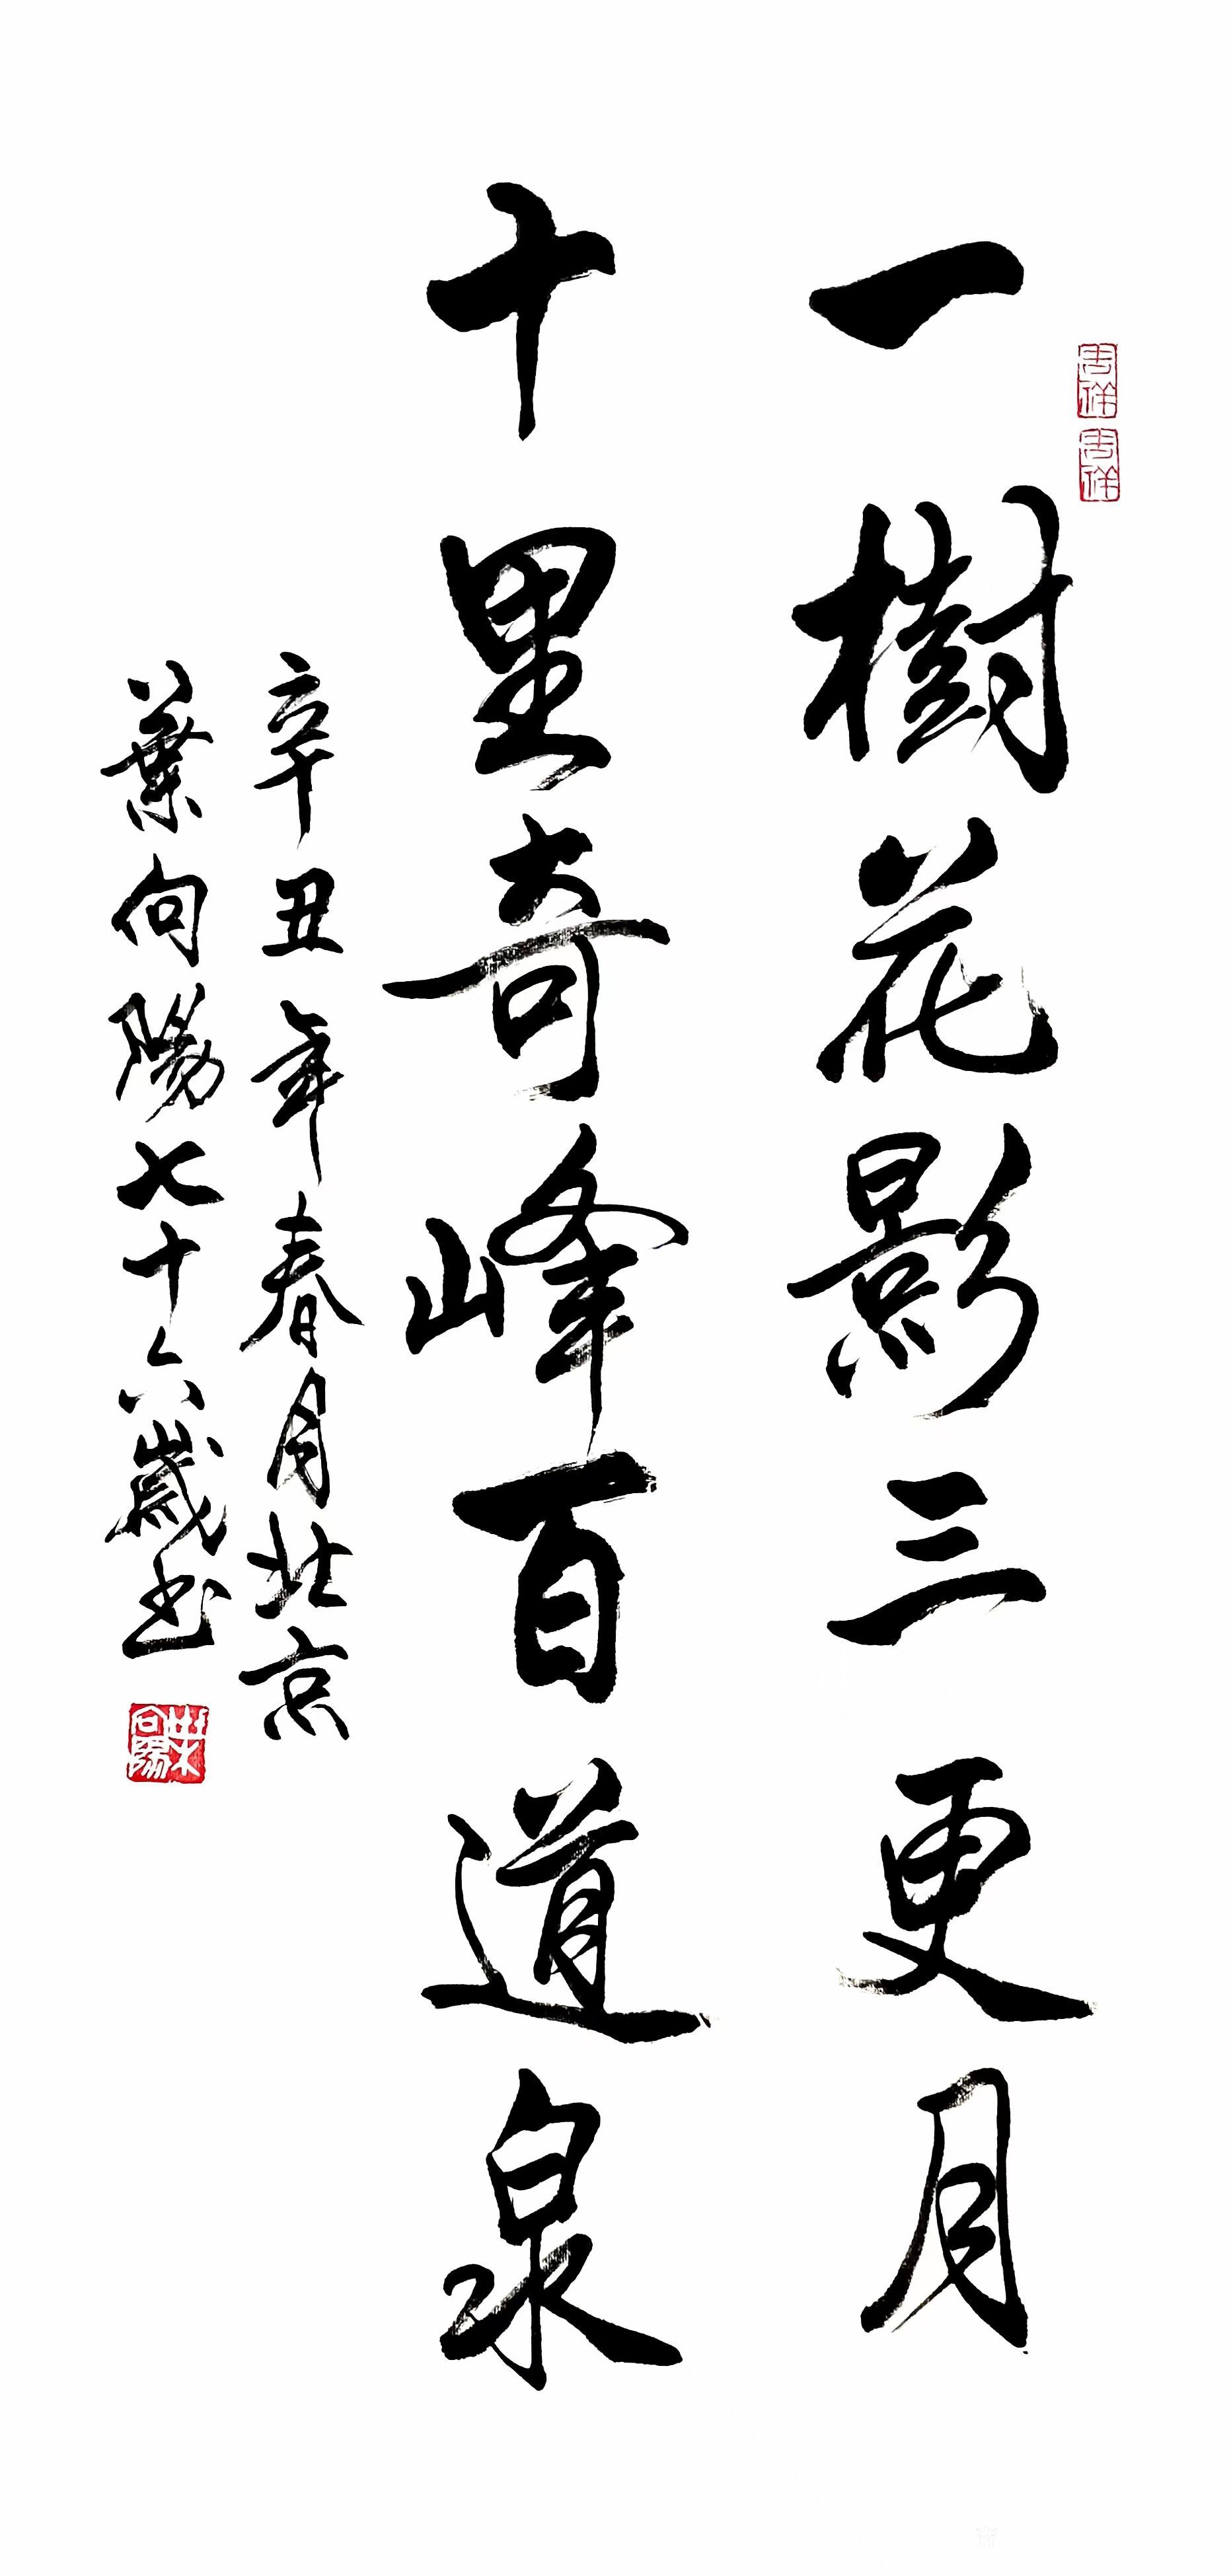 一樹花影三更月
十里奇峰百道泉
辛丑年春月北京
葉向陽七十六歲书
葉向陽